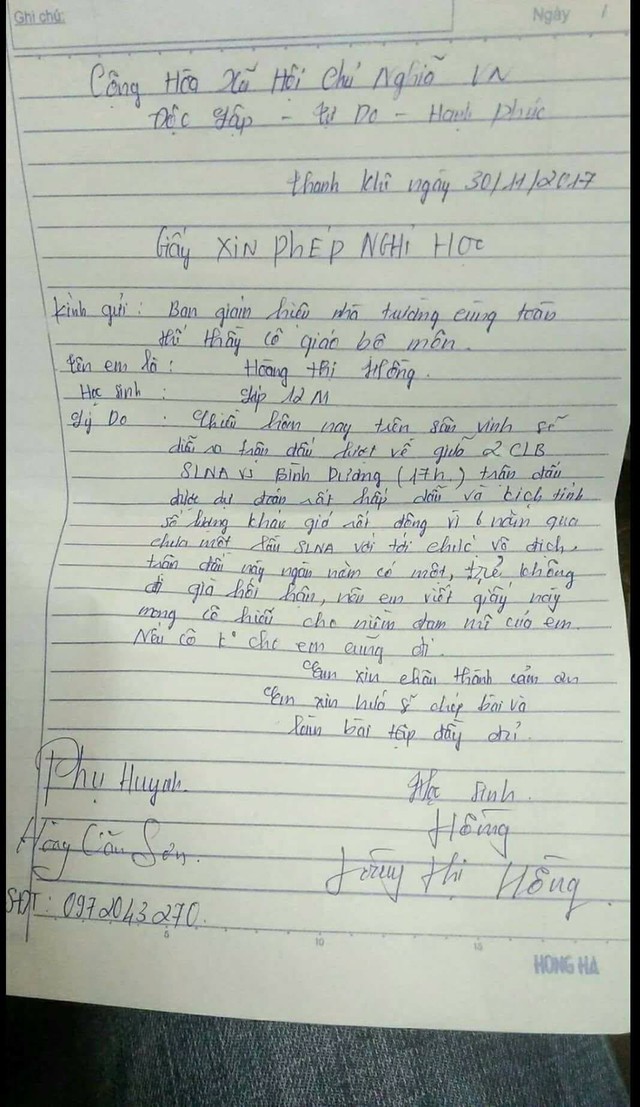 Ghi chú:
Ngày /
Cộng Hòa Xã Hội Chủ Nghĩa VN
Độc Lập - Tự Do - Hạnh Phúc
Thanh Khê ngày 30/11/2017
Giấy XIN PHÉP NGHỈ HỌC
Kính gửi : Ban giám hiệu nhà trường cùng toàn
thể thầy cô giáo bộ môn.
Tên em là : Hoàng Thị Hồng.
Học sinh : Lớp 12M
Lý Do : Chiều hôm nay trên sân vinh sẽ
diễn ra trận đấu lượt về giữa 2 CLB
SLNA vs Bình Dương (17h) trận đấu
được dự đoán rất hấp dẫn và kịch tính
số lượng khán giả rất đông vì 6 năm qua
chưa một lần SLNA với tới chức vô địch,
trận đấu này ngàn năm có một, trẻ không
đi già hối hận, nên em viết giấy này
mong cô hiểu cho niềm đam mê của em.
Nếu cô k° cho em cũng đi.
Em xin chân thành cảm ơn
Em xin hứa sẽ chép bài và
làm bài tập đầy đủ.
Phụ Huynh
Học sinh.
Hồng
Hoàng Thị Hồng
SĐT: 0972043270.
5 10 15
HONG HA